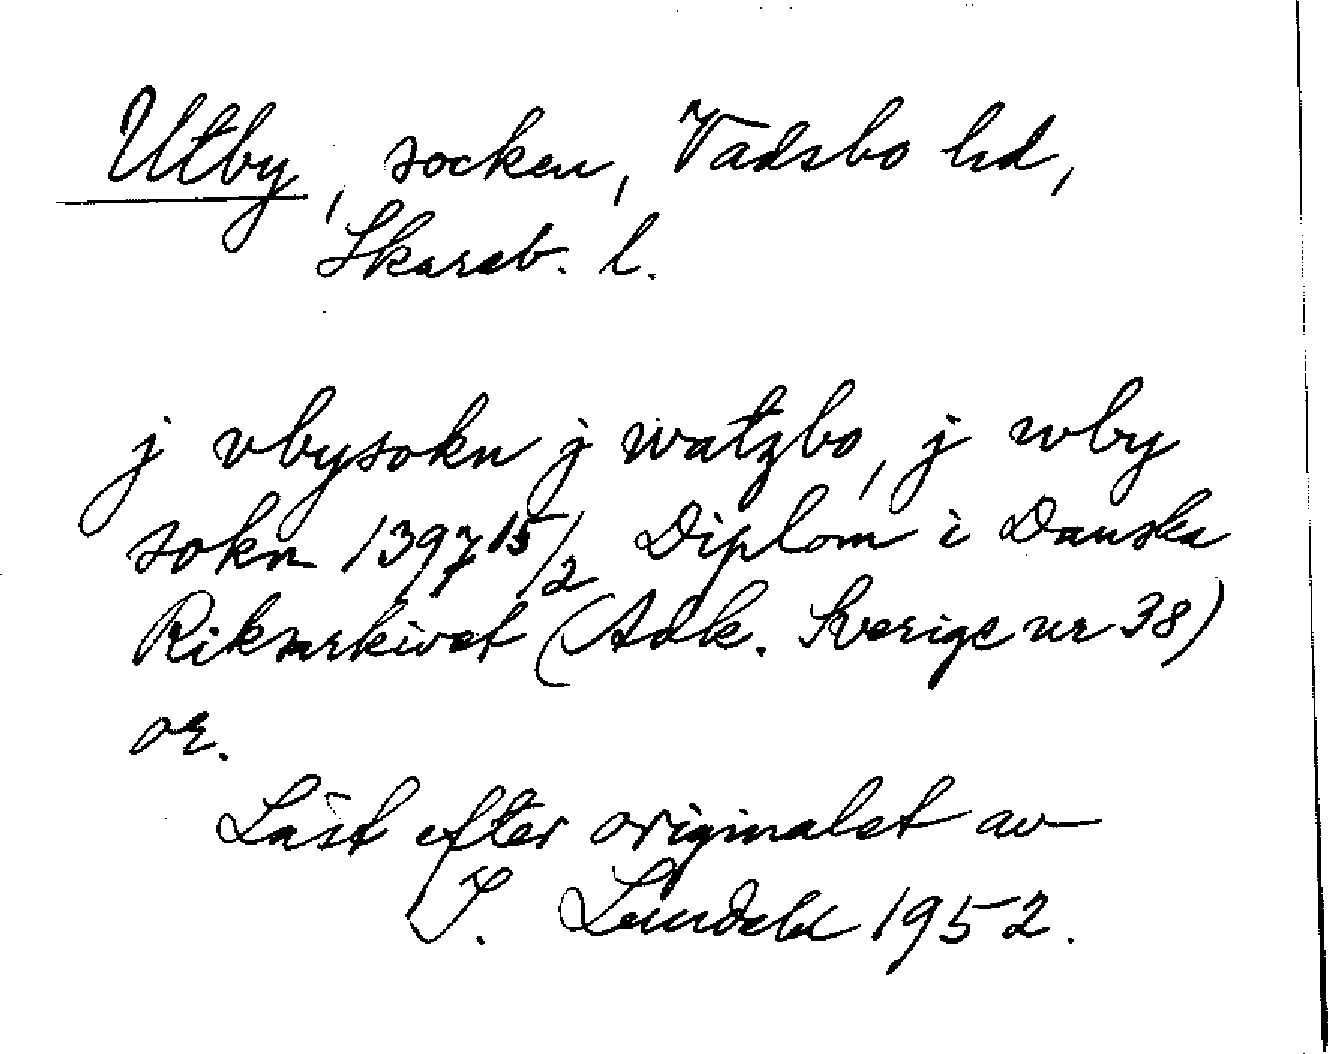 Utby, socken, Vadsbo hd,
Skarab. l.
j vbysokn j watzbo, j wby
sokn 1397 15/2 Diplom i Danska
Riksarkivet (Adk. Sverige nr 38)
or.
Läst efter originalet av
I. Lundahl 1952.